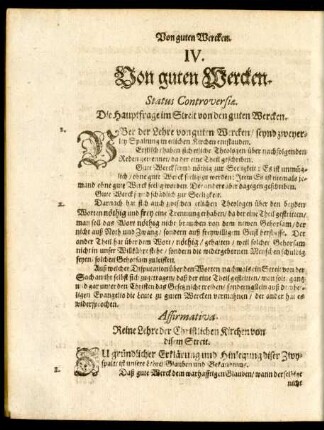 Von guten Wercken.
IV.
Von guten Wercken.
Status Controversiæ.
Die Hauptfrage im Streit von den guten Wercken.
1. UBer der Lehre von guten Wercken / seynd zweyer-
ley Spaltung in etlichen Kirchen entstanden.
Erstlich / haben sich etliche Theologen uber nachfolgenden
Reden getrennet / da der eine Theil geschrieben.
Gute Werck seynd nötig zur Seligkeit: Es ist unmüg-
lich / ohne gute Werck selig zu werden: Item / Es ist niemals je-
mand ohne gute Werck selig worden. Der ander aber dagegen geschrieben.
Gute Werck sind schädlich zur Seligkeit.
2. Darnach hat sich auch zwischen etlichen Theologen uber den beyden
Worten nötig und frey eine Trennung erhaben / da der eine Theil gestritten /
man soll das Wort nötig nicht brauchen von dem newen Gehorsam / der
nicht auß Noth und Zwang / sondern auß freywilligem Geist herfliesse. Der
ander Theil hat uber dem Wort / nötig / gehalten / weil solcher Gehorsam
nicht in unser Willkühr stehe / sondern die widergebornen Menschen schuldig
seyen / solchen Gehorsam zuleisten.
Auß welcher Disputation uber den Worten nachmals ein Streit von der
Sach an ihr selbst sich zugetragen / daß der eine Theil gestritten / man soll gantz
und gar unter den Christen das Gesetz nicht treiben / sondern allein auß dem hey-
ligen Evangelio die Leute zu guten Wercken vermahnen / der ander hat es
widersprochen.
Affirmativa.
Reine Lehre der Christlichen Kirchen von
disem Streit.
ZU gründlicher Erklärung und Hinlegung diser Zwy-
spalt / ist unsere Lehre / Glauben und Bekanntnus.
1. Daß gute Werck dem warhafftigen Glauben / wann derselbige
nicht